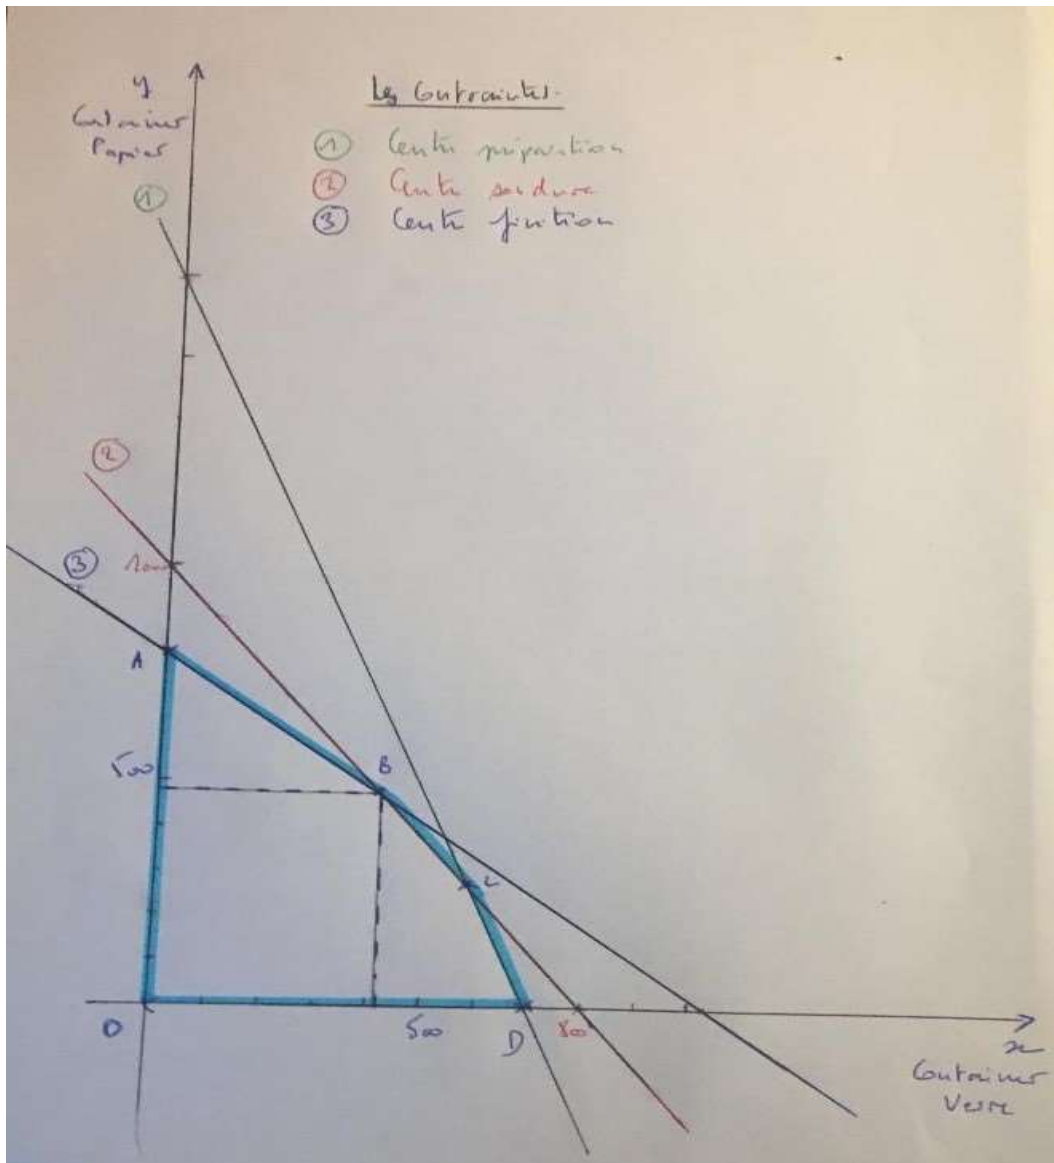 y
Container
Papier
Les Contraintes.
① Centre préparation
② Centre soudure
③ Centre finition
①
②
③
1000
A
500
B
C
O
500
D
800
x
Container
Verre